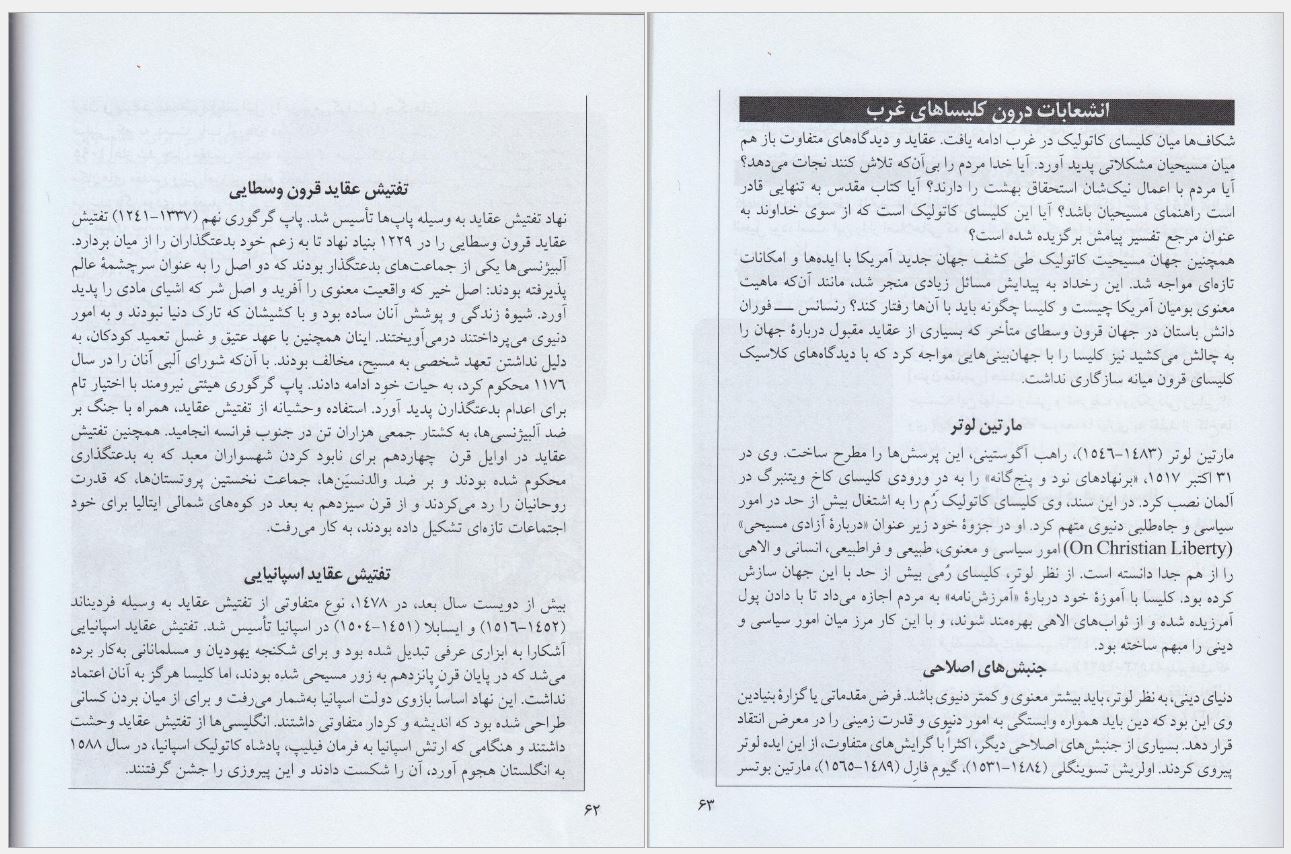 تفتیش عقاید قرون وسطایی
نهاد تفتیش عقاید به وسیله پاپ‌ها تأسیس شد. پاپ گرگوری نهم (۱۳۳۷-۱۲۴۱) تفتیش
عقاید قرون وسطایی را در ۱۲۲۹ بنیاد نهاد تا به زعم خود بدعتگذاران را از میان بردارد.
آلبیژنسی‌ها یکی از جماعت‌های بدعتگذار بودند که دو اصل را به عنوان سرچشمهٔ عالم
پذیرفته بودند: اصل خیر که واقعیت معنوی را آفرید و اصل شر که اشیای مادی را پدید
آورد. شیوهٔ زندگی و پوشش آنان ساده بود و با کشیشان که تارک دنیا نبودند و به امور
دنیوی می‌پرداختند درمی‌آویختند. اینان همچنین با عهد عتیق و غسل تعمید کودکان، به
دلیل نداشتن تعهد شخصی به مسیح، مخالف بودند. با آن‌که شورای آلبی آنان را در سال
۱۱۷۶ محکوم کرد، به حیات خود ادامه دادند. پاپ گرگوری هیئتی نیرومند با اختیار تام
برای اعدام بدعتگذارن پدید آورد. استفاده وحشیانه از تفتیش عقاید، همراه با جنگ بر
ضد آلبیژنسی‌ها، به کشتار جمعی هزاران تن در جنوب فرانسه انجامید. همچنین تفتیش
عقاید در اوایل قرن چهاردهم برای نابود کردن شهسواران معبد که به بدعتگذاری
محکوم شده بودند و بر ضد والدنسیَن‌ها، جماعت نخستین پروتستان‌ها، که قدرت
روحانیان را رد می‌کردند و از قرن سیزدهم به بعد در کوه‌های شمالی ایتالیا برای خود
اجتماعات تازه‌ای تشکیل داده بودند، به کار می‌رفت.
تفتیش عقاید اسپانیایی
بیش از دویست سال بعد، در ۱۴۷۸، نوع متفاوتی از تفتیش عقاید به وسیله فردیناند
(۱۴۵۲-۱۵۱۶) و ایسابلا (۱۴۵۱-۱۵۰۴) در اسپانیا تأسیس شد. تفتیش عقاید اسپانیایی
آشکارا به ابزاری عرفی تبدیل شده بود و برای شکنجه یهودیان و مسلمانانی به‌کار برده
می‌شد که در پایان قرن پانزدهم به زور مسیحی شده بودند، اما کلیسا هرگز به آنان اعتماد
نداشت. این نهاد اساساً بازوی دولت اسپانیا به‌شمار می‌رفت و برای از میان بردن کسانی
طراحی شده بود که اندیشه و کردار متفاوتی داشتند. انگلیسی‌ها از تفتیش عقاید وحشت
داشتند و هنگامی که ارتش اسپانیا به فرمان فیلیپ، پادشاه کاتولیک اسپانیا، در سال ۱۵۸۸
به انگلستان هجوم آورد، آن را شکست دادند و این پیروزی را جشن گرفتند.
۶۲
انشعابات درون کلیساهای غرب
شکاف‌ها میان کلیسای کاتولیک در غرب ادامه یافت. عقاید و دیدگاه‌های متفاوت باز هم
میان مسیحیان مشکلاتی پدید آورد. آیا خدا مردم را بی‌آن‌که تلاش کنند نجات می‌دهد؟
آیا مردم با اعمال نیک‌شان استحقاق بهشت را دارند؟ آیا کتاب مقدس به تنهایی قادر
است راهنمای مسیحیان باشد؟ آیا این کلیسای کاتولیک است که از سوی خداوند به
عنوان مرجع تفسیر پیامش برگزیده شده است؟
همچنین جهان مسیحیت کاتولیک طی کشف جهان جدید آمریکا با ایده‌ها و امکانات
تازه‌ای مواجه شد. این رخداد به پیدایش مسائل زیادی منجر شد، مانند آن‌که ماهیت
معنوی بومیان آمریکا چیست و کلیسا چگونه باید با آن‌ها رفتار کند؟ رنسانس — فوران
دانش باستان در جهان قرون وسطای متأخر که بسیاری از عقاید مقبول دربارهٔ جهان را
به چالش می‌کشید نیز کلیسا را با جهان‌بینی‌هایی مواجه کرد که با دیدگاه‌های کلاسیک
کلیسای قرون میانه سازگاری نداشت.
مارتین لوتر
مارتین لوتر (۱۴۸۳-۱۵۴۶)، راهب آگوستینی، این پرسش‌ها را مطرح ساخت. وی در
۳۱ اکتبر ۱۵۱۷، «برنهادهای نود و پنج‌گانه» را به در ورودی کلیسای کاخ ویتنبرگ در
آلمان نصب کرد. در این سند، وی کلیسای کاتولیک رُم را به اشتغال بیش از حد در امور
سیاسی و جاه‌طلبی دنیوی متهم کرد. او در جزوهٔ خود زیر عنوان «دربارهٔ آزادی مسیحی»
(On Christian Liberty) امور سیاسی و معنوی، طبیعی و فراطبیعی، انسانی و الاهی
را از هم جدا دانسته است. از نظر لوتر، کلیسای رُمی بیش از حد با این جهان سازش
کرده بود. کلیسا با آموزهٔ خود دربارهٔ «آمرزش‌نامه» به مردم اجازه می‌داد تا با دادن پول
آمرزیده شده و از ثواب‌های الاهی بهره‌مند شوند، و با این کار مرز میان امور سیاسی و
دینی را مبهم ساخته بود.
جنبش‌های اصلاحی
دنیای دینی، به نظر لوتر، باید بیشتر معنوی و کمتر دنیوی باشد. فرض مقدماتی یا گزارهٔ بنیادین
وی این بود که دین باید همواره وابستگی به امور دنیوی و قدرت زمینی را در معرض انتقاد
قرار دهد. بسیاری از جنبش‌های اصلاحی دیگر، اکثراً با گرایش‌های متفاوت، از این ایده لوتر
پیروی کردند. اولریش تسوینگلی (۱۴۸۴-۱۵۳۱)، گیوم فارِل (۱۴۸۹-۱۵۶۵)، مارتین بوتسر
۶۳